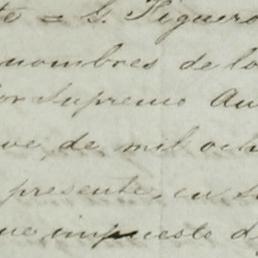 te = G. Figuero
nombres de lo
or Supremo Au
ve, de mil och
presente, en s
ue impuesto d